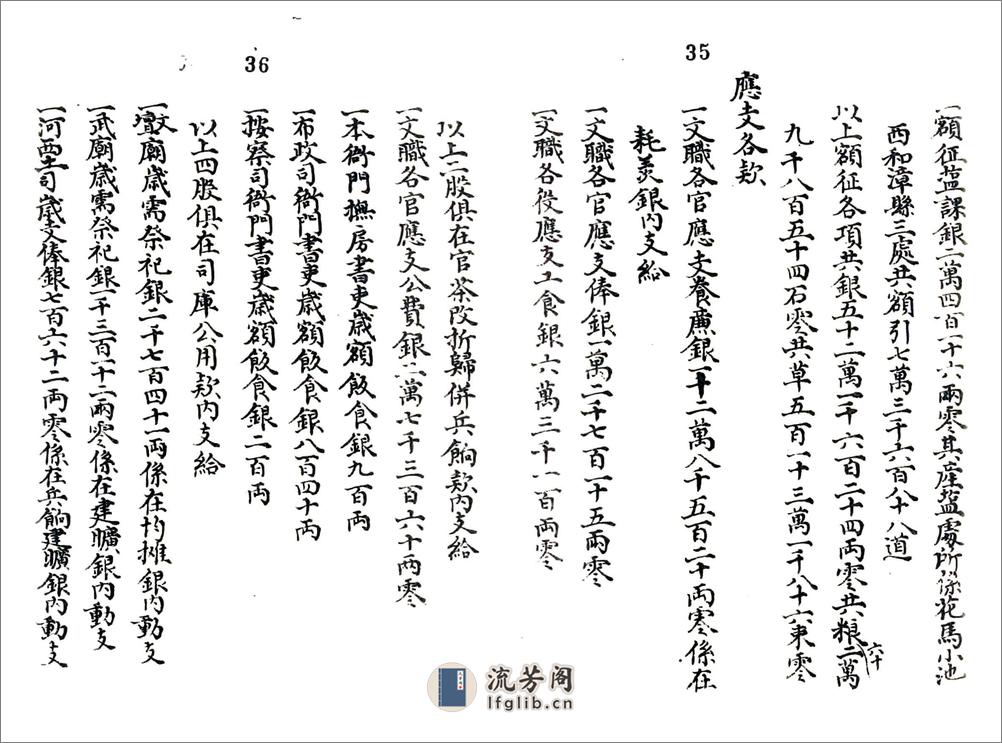 35
一額征塩課銀二萬四百一十六兩零其產塩處所係花馬小池
西和漳縣三處共額引七萬三千六百八十八道
以上額征各項共銀五十二萬一千六百二十四両零共粮二萬
六十
九千八百五十四石零共草五百一十三萬一千八十六束零
應支各款
一文職各官應支養亷銀一十二萬八千五百二十両零係在
耗羡銀内支給
一文職各官應支俸銀一萬二千七百一十五兩零
一文職各役應支工食銀六萬三千一百両零
36
以上二股俱在官茶改折歸併兵餉款内支給
一文職各官應支公費銀二萬七千三百六十両零
一本衙門撫房書吏歲額飯食銀九百両
一布政司衙門書吏歲額飯食銀八百四十両
一按察司衙門書吏歲額飯食銀二百両
以上四股俱在司庫公用款内支給
一文壇廟歲需祭祀銀二千七百四十一両係在均攤銀内動支
一武廟歲需祭祀銀一千三百一十二兩零係在建曠銀内動支
一河西土司歲支俸銀七百六十二両零係在兵餉建曠銀内動支
流芳阁
lfglib.cn